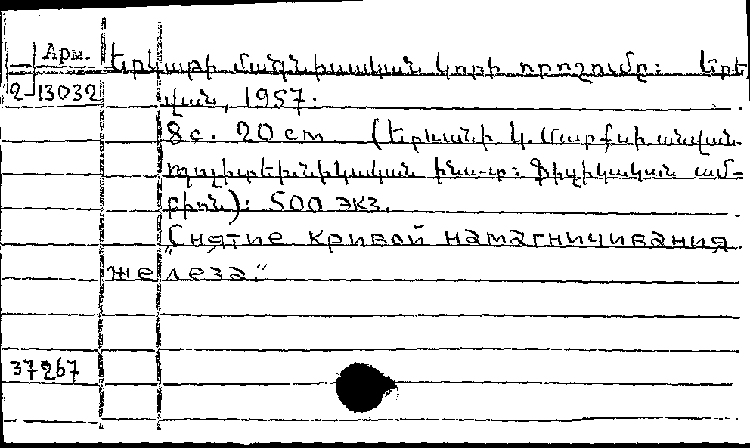 Арм.
Երկաթի մագնիսական կորի որոշումը: Երե
2 13032
վան, 1957.
8 с. 20 cm (Երևանի Կ. Մարքսի անվան
պոլիտեխնիկական ինստ: Ֆիզիկական ամ-
բիոն): 500 экз.
„Снятие кривой намагничивания
железа."
37267